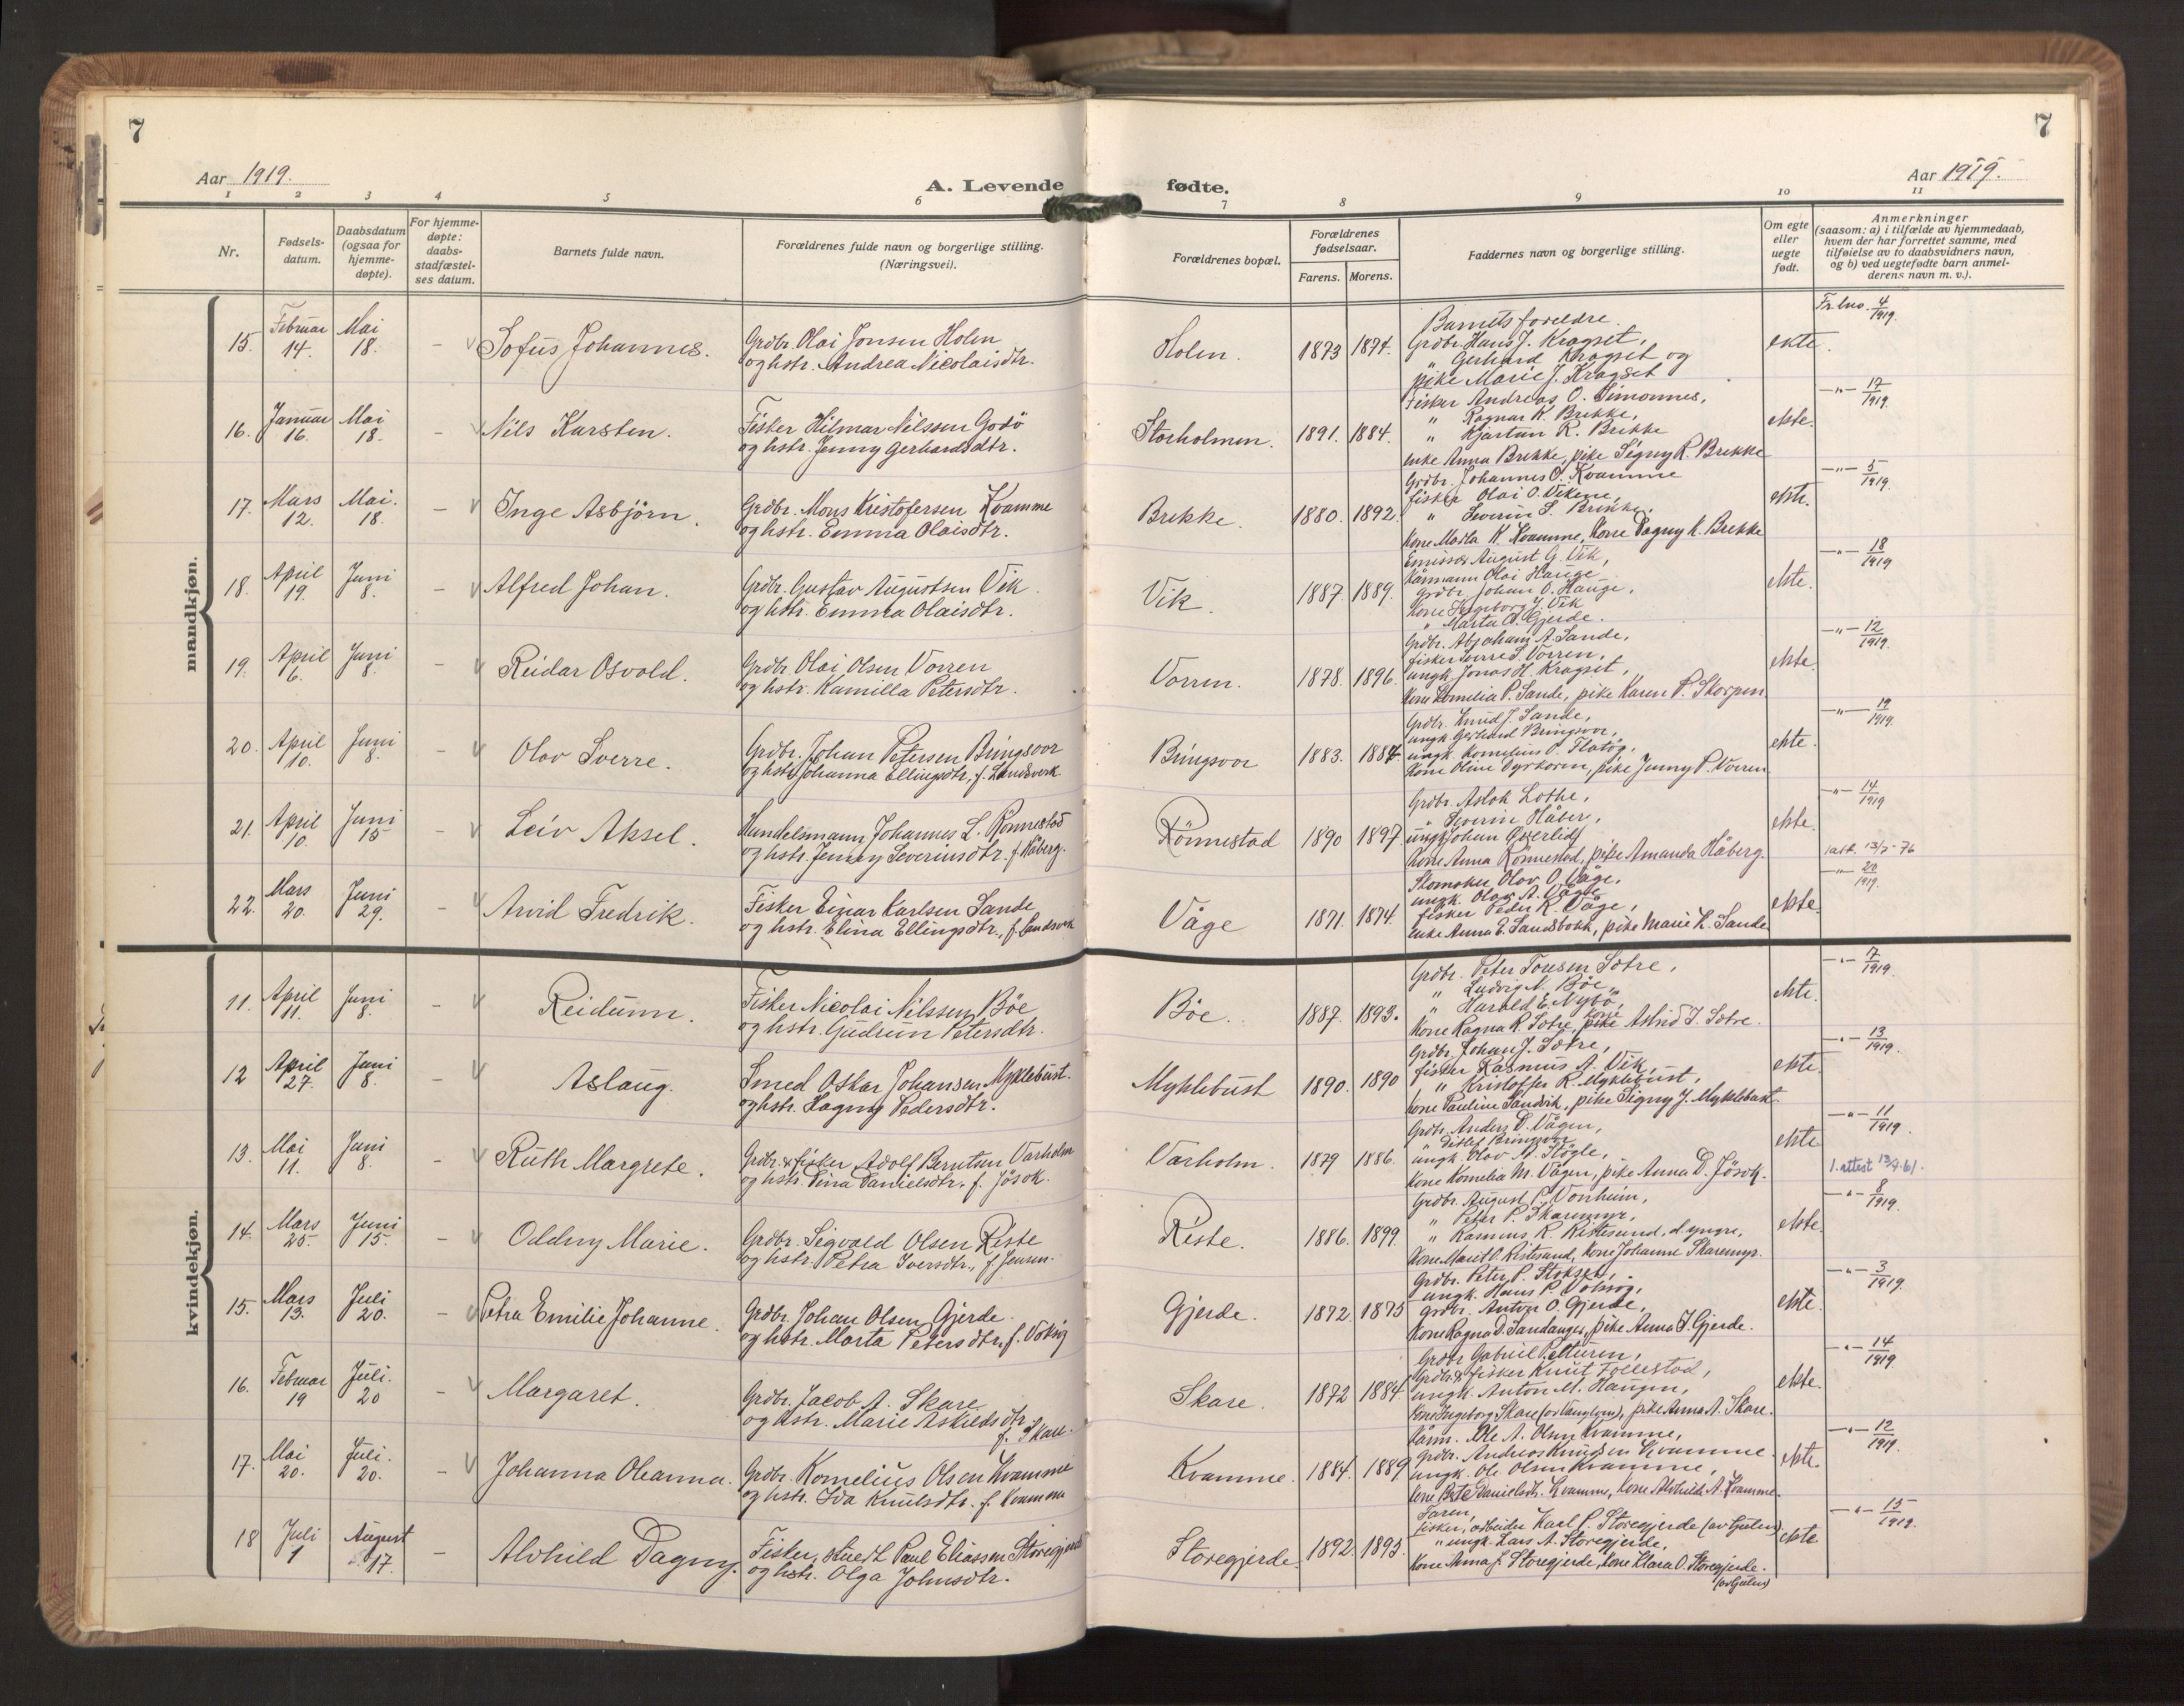 7
7
Aar 1919.
A. Levende fødte.
Aar 1919.
1 2 3 4 5 6 7 8 9 10 11
Nr.
Fødsels-datum.
Daabsdatum (ogsaa for hjemme-døpte).
For hjemme-døpte: daabs-stadfæstel-ses datum.
Barnets fulde navn.
Forældrenes fulde navn og borgerlige stilling. (Næringsvei).
Forældrenes bopæl.
Forældrenes fødselsaar.
Farens. Morens.
Faddernes navn og borgerlige stilling.
Om egte eller uegte født.
Anmerkninger
(saasom: a) i tilfælde av hjemmedaab, hvem der har forrettet samme, med tilføielse av to daabsvidners navn, og b) ved uegtefødte barn anmel-derens navn m. v.).
mandkjøn.
15. Februar 14. Mai 18. - Sofus Johannes. Grdbr. Olai Jonsen Holen og hstr. Andrea Nicolaisdtr. Holen. 1873 1874. Barnets foreldre. Grdbr. Hans J. Kragset, " Gerhard Kragset og pike Marie J. Kragset ekte. 4/1919.
16. Januar 16. Mai 18. - Nils Karsten. Fisker Hilmar Nilssen Godö og hstr. Jenny Gerhardsdtr. Storholmen. 1891. 1884. Fisker Andreas O. Simonnes, " Ragnar K. Brekke, " Kjartan R. Brekke enke Anna Brekke, pike Signy R. Brekke ekte. -"- 17/1919.
17. Mars 12. Mai. 18. - Inge Asbjörn. Grdbr. Mons Kristofersen Kvamme og hstr. Emma Olaisdtr. Brekke. 1880. 1892. Grdbr. Johannes O. Kvamme fisker Olai O. Vikene, " Severin S. Brekke, Kone Marta K. Kvamme, Kone Dagny K. Brekke ekte. -"- 5/1919.
18. April 19. Juni 8. - Alfred Johan. Grdbr. Gustav Augustsen Vik og hstr. Emma Olaisdtr. Vik. 1887 1889. Emissær August G. Vik, Kårmann Olai Hauge grdbr. Johan O. Hauge, Kone Ingeborg J. Vik " Marta A. Gjerde. ekte. -"- 18/1919
19. April 6. Juni 8. - Reidar Osvold. Grdbr. Olai Olsen Vorren og hstr. Kamilla Petersdtr. Vorren. 1878. 1896. Grdbr. Abraham A. Sande, fisker Sverre S. Vorren, ungk. Jonas H. Kragset, Kone Kornelia P. Sande, pike Karen P. Skorpen ekte. -"- 12/1919.
20. April 10. Juni 8. - Olav Sverre. Grdbr. Johan Petersen Bringsvor og hstr. Johanna Ellingsdtr, f. Landsverk Bringsvor 1883. 1884. Grdbr. Knud J. Sande, ungk. Gerhard Bringsvor, ungk. Kornelius P. Flatög, Kone Oline Dyrkoren, pike Jenny P. Vorren ekte. -"- 19/1919.
21. April 10. Juni 15 - Leiv Aksel. Handelsmann Johannes L. Rönnestad og hstr. Jenny Severinsdtr. f. Håberg. Rönnestad 1890 1897. Grdbr. Aslak Lothe, " Severin Håber, ungk. Johan Överlid, Kone Anna Rönnestad, pike Amanda Håberg. ekte. -"- 14/1919
22. Mars 20. Juni 29. - Arvid Fredrik. Fisker Einar Karlsen Sande og hstr. Elina Ellingsdtr., f. Landsverk Våge 1871. 1874. Skomaker Olav O. Våge, ungk. Olav A. Våge fisker Peder K. Våge, enke Anna E. Sandsbakk, pike Marie K. Sande ekte. -"- 20/1919.
kvindekjøn.
11. April 11. Juni 8. - Reidunn. Fisker Nicolai Nilssen Böe og hstr. Gudrun Petersdtr. Böe. 1887. 1893. Grdbr. Peter Tonesen Sætre, " Ludvig N. Böe, " Harald E. Nybö, Kone Ragna R. Sætre, kone Astrid J. Sætre. ekte. -"- 7/1919.
12 April 27. Juni 8. - Aslaug. Smed Oskar Johansen Myklebust. og hstr. Dagny Pedersdtr. Myklebust 1890. 1890 Grdbr. Johan J. Sætre, fisker Rasmus A. Vik, " Kristoffer R. Myklebust, Kone Pauline Sandvik, pike Signy J. Myklebust. ekte. -"- 13/1919.
13. Mai 11. Juni 8. - Ruth Margrete. Grdbr. & fisker Adolf Berntsen Varholm og hstr. Lina Danielsdtr. f. Jösok. Varholm. 1879 1886. Grdbr. Anders D. Vågen, " Ditlef Bringsvor ungk. Olav A. Högle, Kone Kornelia M. Vågen, pike Anna D. Jösok. ekte -"- 11/1919. 1. attest 13/4-61.
14. Mars 25. Juni 15. - Oddny Marie. Grdbr. Sigvald Olsen Riste og hstr. Petra Iversdtr., f. Jensen. Riste. 1886. 1899. Grdbr. August P. Vonheim, " Peter P. Skaremyr, " Rasmus R. Ristesund, d. yngre, Kone Marit O. Ristesund, Kone Johanne Skaremyr. ekte. -"- 8/1919.
15. Mars 13. Juli 20. - Petra Emilie Johanne. Grdbr. Johan Olsen Gjerde. og hstr. Marta Petersdtr. Gjerde. 1872. 1875 Grdbr. Peter P. Stokset, ungk. Hans P. grdbr. Anton O. Gjerde, Kone Ragna D. Sandanger, pike Anna J. Gjerde. ekte. -"- 3/1919.
16. Februar 19 Juli. 20 - Margaret. Grdbr. Jacob A. Skare og hstr. Marie Askildsdtr. f. Skare. Skare. 1872 1884 Grdbr. Gabriel grdbr. & fisker Knut Follestad, ungk. Anton M. Haugen, Kone Ingeborg Skare pike Anna A. Skare. ekte. -"- 14/1919.
17. Mai 20. Juli. 20. - Johanna Oleanna. Grdbr. Kornelius Olsen Kvamme og hstr. Ida Knutsdtr. f. Kvamme Kvamme. 1884. 1889 Kårm. Ole A. Olsen Kvamme, grdbr. Andreas Knudsen Kvamme. ungk. Ole Olsen Kvamme, Kone Berte Danielsdtr. Kvamme, Kone A. Kvamme. ekte. -"- 12/1919.
18 Juli 1 August 17. - Alvhild Dagny. Fisker, Paul Eliassen Storegjerde og hstr. Olga Johnsdtr. Storegjerde 1892. 1893. Faren, fisker, arbeider Karl P. Storegjerde " ungk. Lars A. Storegjerde, Kone Anna J. Storegjerde, Kone Klara O. Storegjerde. ekte -"- 15/1919.